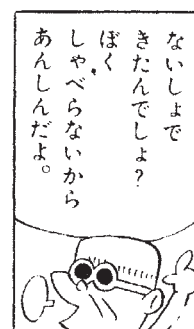 ないしょで
きたんでしょ？
ぼく
しゃべらないから
あんしんだよ。